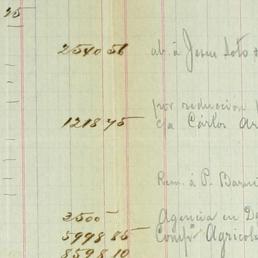 25
2540 56 ab. á Jesus Soto
por reduccion
1218 75 c/a Cárlos
Rem. á P.
2500 Agencia en
5998 85 Compª Agricola
8598 10